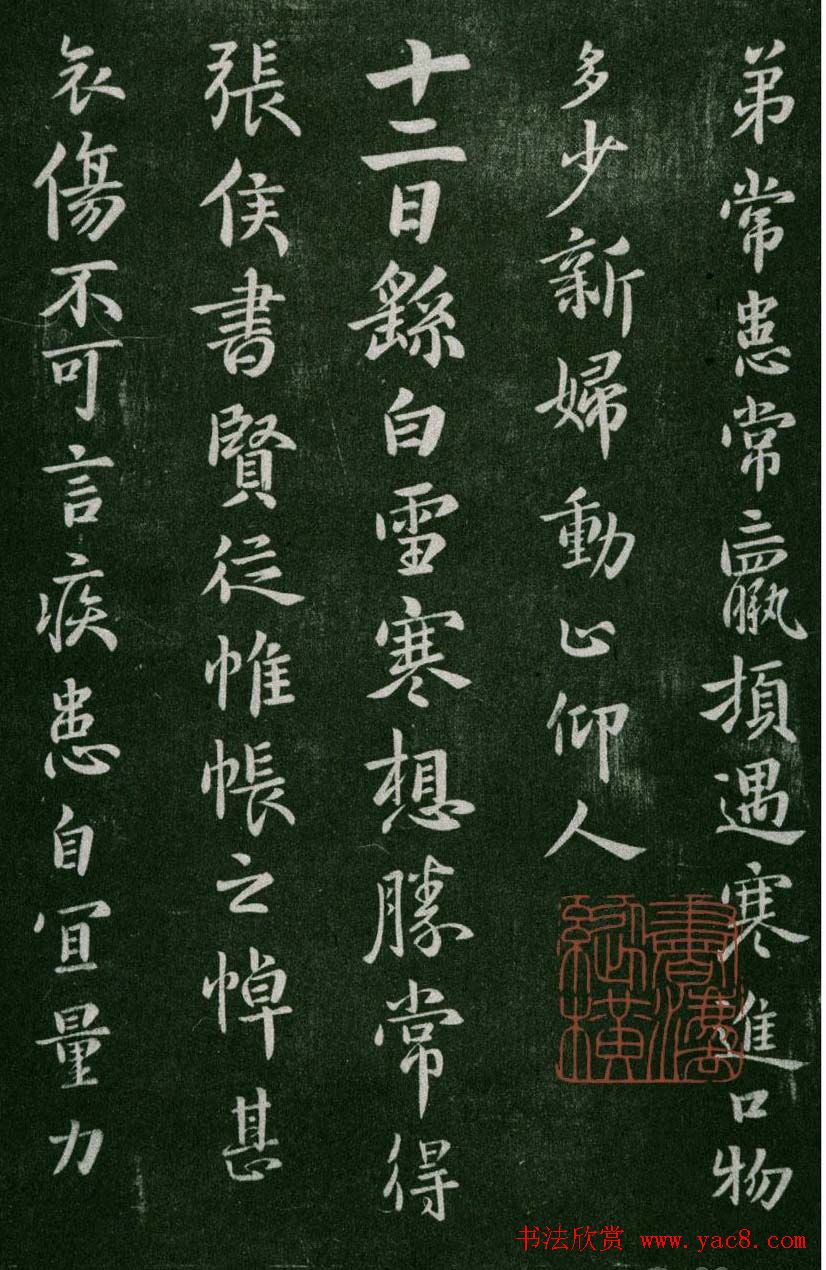 弟常患常羸頓遇寒進口物
多少新婦動止仰人
十二日繇白雪寒想勝常得
張侯書賢從帷帳之悼甚
哀傷不可言疾患自宜量力
書海
縱橫
书法欣赏 www.yac8.com